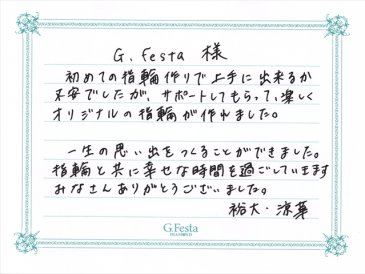 G.Festa 様
初めての指輪作りで上手に出来るか
不安でしたが、サポートしてもらって、楽しく
オリジナルの指輪が作れました。
一生の思い出をつくることができました。
指輪と共に幸せな時間を過ごしていきます
みなさんありがとうございました。
裕大・涼華
G.Festa